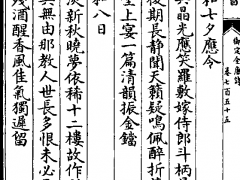 御定全唐詩
卷七百五十五
和七夕應令
共晶光應笑羅敷嫁侍郎斗柄
後期長靜聞天籟疑鳴佩醉折
堂上宴一篇清韻振金鐺
和八日
淡新秋曉夢依稀十二樓故作
共無由那教人世長多恨未必
殘酒醒香風佳氣獨遲留